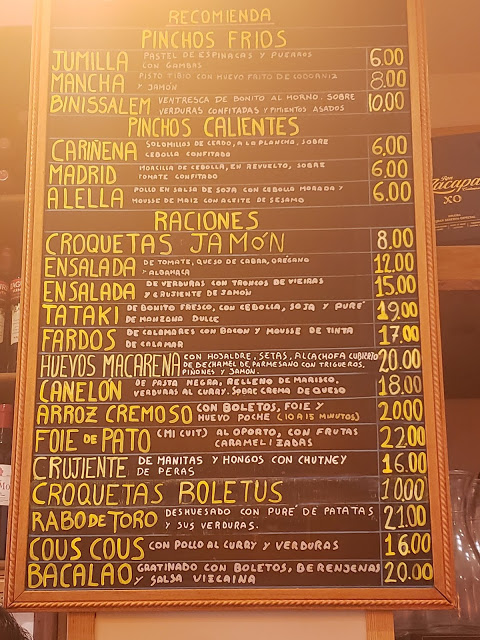 RECOMIENDA
PINCHOS FRIOS
JUMILLA PASTEL DE ESPINACAS Y PUERROS 6.00
CON GAMBAS
MANCHA PISTO TIBIO CON HUEVO FRITO DE CODORNIZ 8.00
Y JAMÓN
BINISSALEM VENTRESCA DE BONITO AL HORNO. SOBRE 10.00
VERDURAS CONFITADAS Y PIMIENTOS ASADOS
PINCHOS CALIENTES
CARIÑENA SOLOMILLOS DE CERDO, A LA PLANCHA, SOBRE 6.00
CEBOLLA CONFITADA
MADRID MORCILLA DE CEBOLLA, EN REVUELTO, SOBRE 6.00
TOMATE CONFITADO
ALELLA POLLO EN SALSA DE SOJA CON CEBOLLA MORADA Y 6.00
MOUSSE DE MAIZ CON ACEITE DE SESAMO
RACIONES
CROQUETAS JAMÓN 8.00
ENSALADA DE TOMATE, QUESO DE CABRA, ORÉGANO 12.00
Y ALBAHACA
ENSALADA DE VERDURAS CON TRONCOS DE VIEIRAS 15.00
Y CRUJIENTE DE JAMÓN
TATAKI DE BONITO FRESCO, CON CEBOLLA, SOJA Y PURÉ 19.00
DE MANZANA DULCE
FARDOS DE CALAMARES CON BACON Y MOUSSE DE TINTA 17.00
DE CALAMAR
HUEVOS MACARENA CON HOJALDRE, SETAS, ALCACHOFA CUBIERTO 20.00
DE BECHAMEL DE PARMESANO CON TRIGUEROS,
PIÑONES Y JAMÓN.
CANELÓN DE PASTA NEGRA, RELLENO DE MARISCO, 18.00
VERDURAS AL CURRY. SOBRE CREMA DE QUESO
ARROZ CREMOSO CON BOLETOS, FOIE Y 20.00
HUEVO POCHÉ (10 A 15 MINUTOS)
FOIE DE PATO (MI CUIT) AL OPORTO, CON FRUTAS 22.00
CARAMELIZADAS
CRUJIENTE DE MANITAS Y HONGOS CON CHUTNEY 16.00
DE PERAS
CROQUETAS BOLETUS 10.00
RABO DE TORO DESHUESADO CON PURÉ DE PATATAS 21.00
Y SUS VERDURAS.
COUS COUS CON POLLO AL CURRY Y VERDURAS 16.00
BACALAO GRATINADO CON BOLETOS, BERENJENAS 20.00
Y SALSA VIZCAINA
Ron
Zacapa
XO